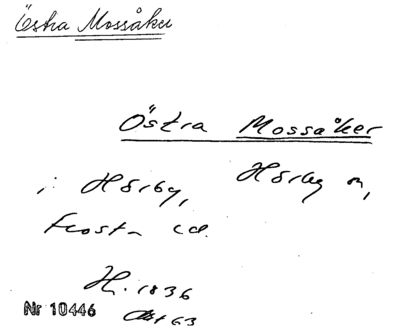 Östra Mossåker
Östra Mossåker
i Hörby, Hörby sn,
Frosta hd.
H. 1836
Akt 63
Nr 10446